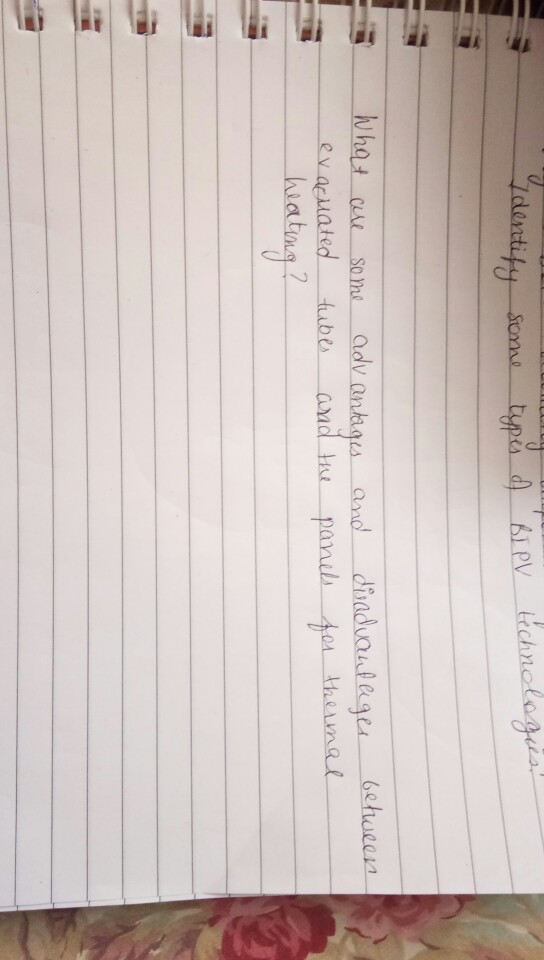 Identify some types of BIPV technologies.
What are some advantages and disadvantages between
evacuated tubes and the panels for thermal
heating?